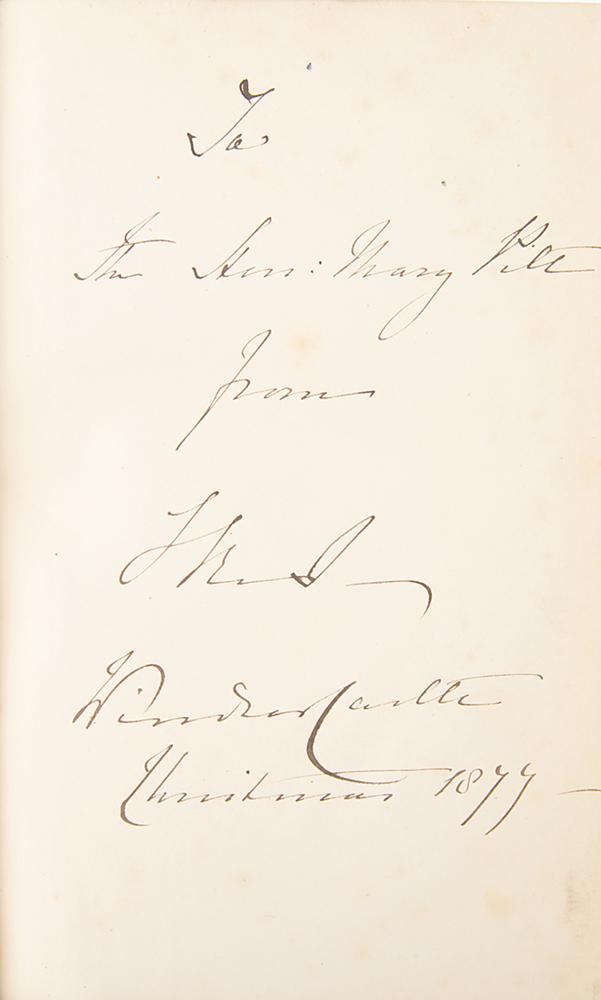 To
The Hon: Mary Pitt
from
Windsor Castle
Christmas 1877 —